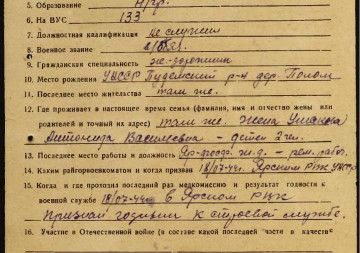 5. Образование
6. На ВУС 133
7. Должностная квалификация не служил
8. Военное звание
9. Гражданская специальность
10. Место рождения УАССР р-н дер. Полом
11. Последнее место жительства там же.
12. Где проживает в настоящее время семья (фамилия, имя и отчество жены или
родителей и точный их адрес) там же. Жена
Васильевна – детей 2 чел.
13. Последнее место работы и должность ж.д. – рем. рабоч.
14. Каким райгорвоенкоматом и когда призван 18/07-44г. Ярском РВК УАССР
15. Когда и где проходил последний раз медкомиссию и результат годности к
военной службе 18/07-44г. в Ярском РВК
Признан годным к строевой службе.
16. Участие в Отечественной войне (в составе какой последней части и в качестве